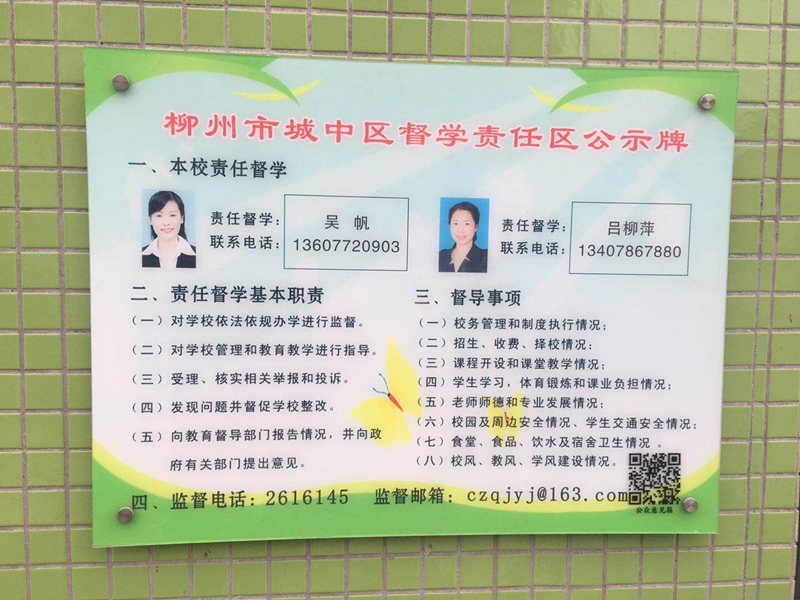 柳州市城中区督学责任区公示牌
一、本校责任督学
责任督学： 吴 帆
联系电话： 13607720903
责任督学： 吕柳萍
联系电话： 13407867880
二、责任督学基本职责
（一）对学校依法依规办学进行监督。
（二）对学校管理和教育教学进行指导。
（三）受理、核实相关举报和投诉。
（四）发现问题并督促学校整改。
（五）向教育督导部门报告情况，并向政
府有关部门提出意见。
三、督导事项
（一）校务管理和制度执行情况；
（二）招生、收费、择校情况；
（三）课程开设和课堂教学情况；
（四）学生学习，体育锻炼和课业负担情况；
（五）老师师德和专业发展情况；
（六）校园及周边安全情况、学生交通安全情况；
（七）食堂、食品、饮水及宿舍卫生情况 。
（八）校风、教风、学风建设情况。
四、监督电话：2616145 监督邮箱：czqjyj@163.com
公众意见箱